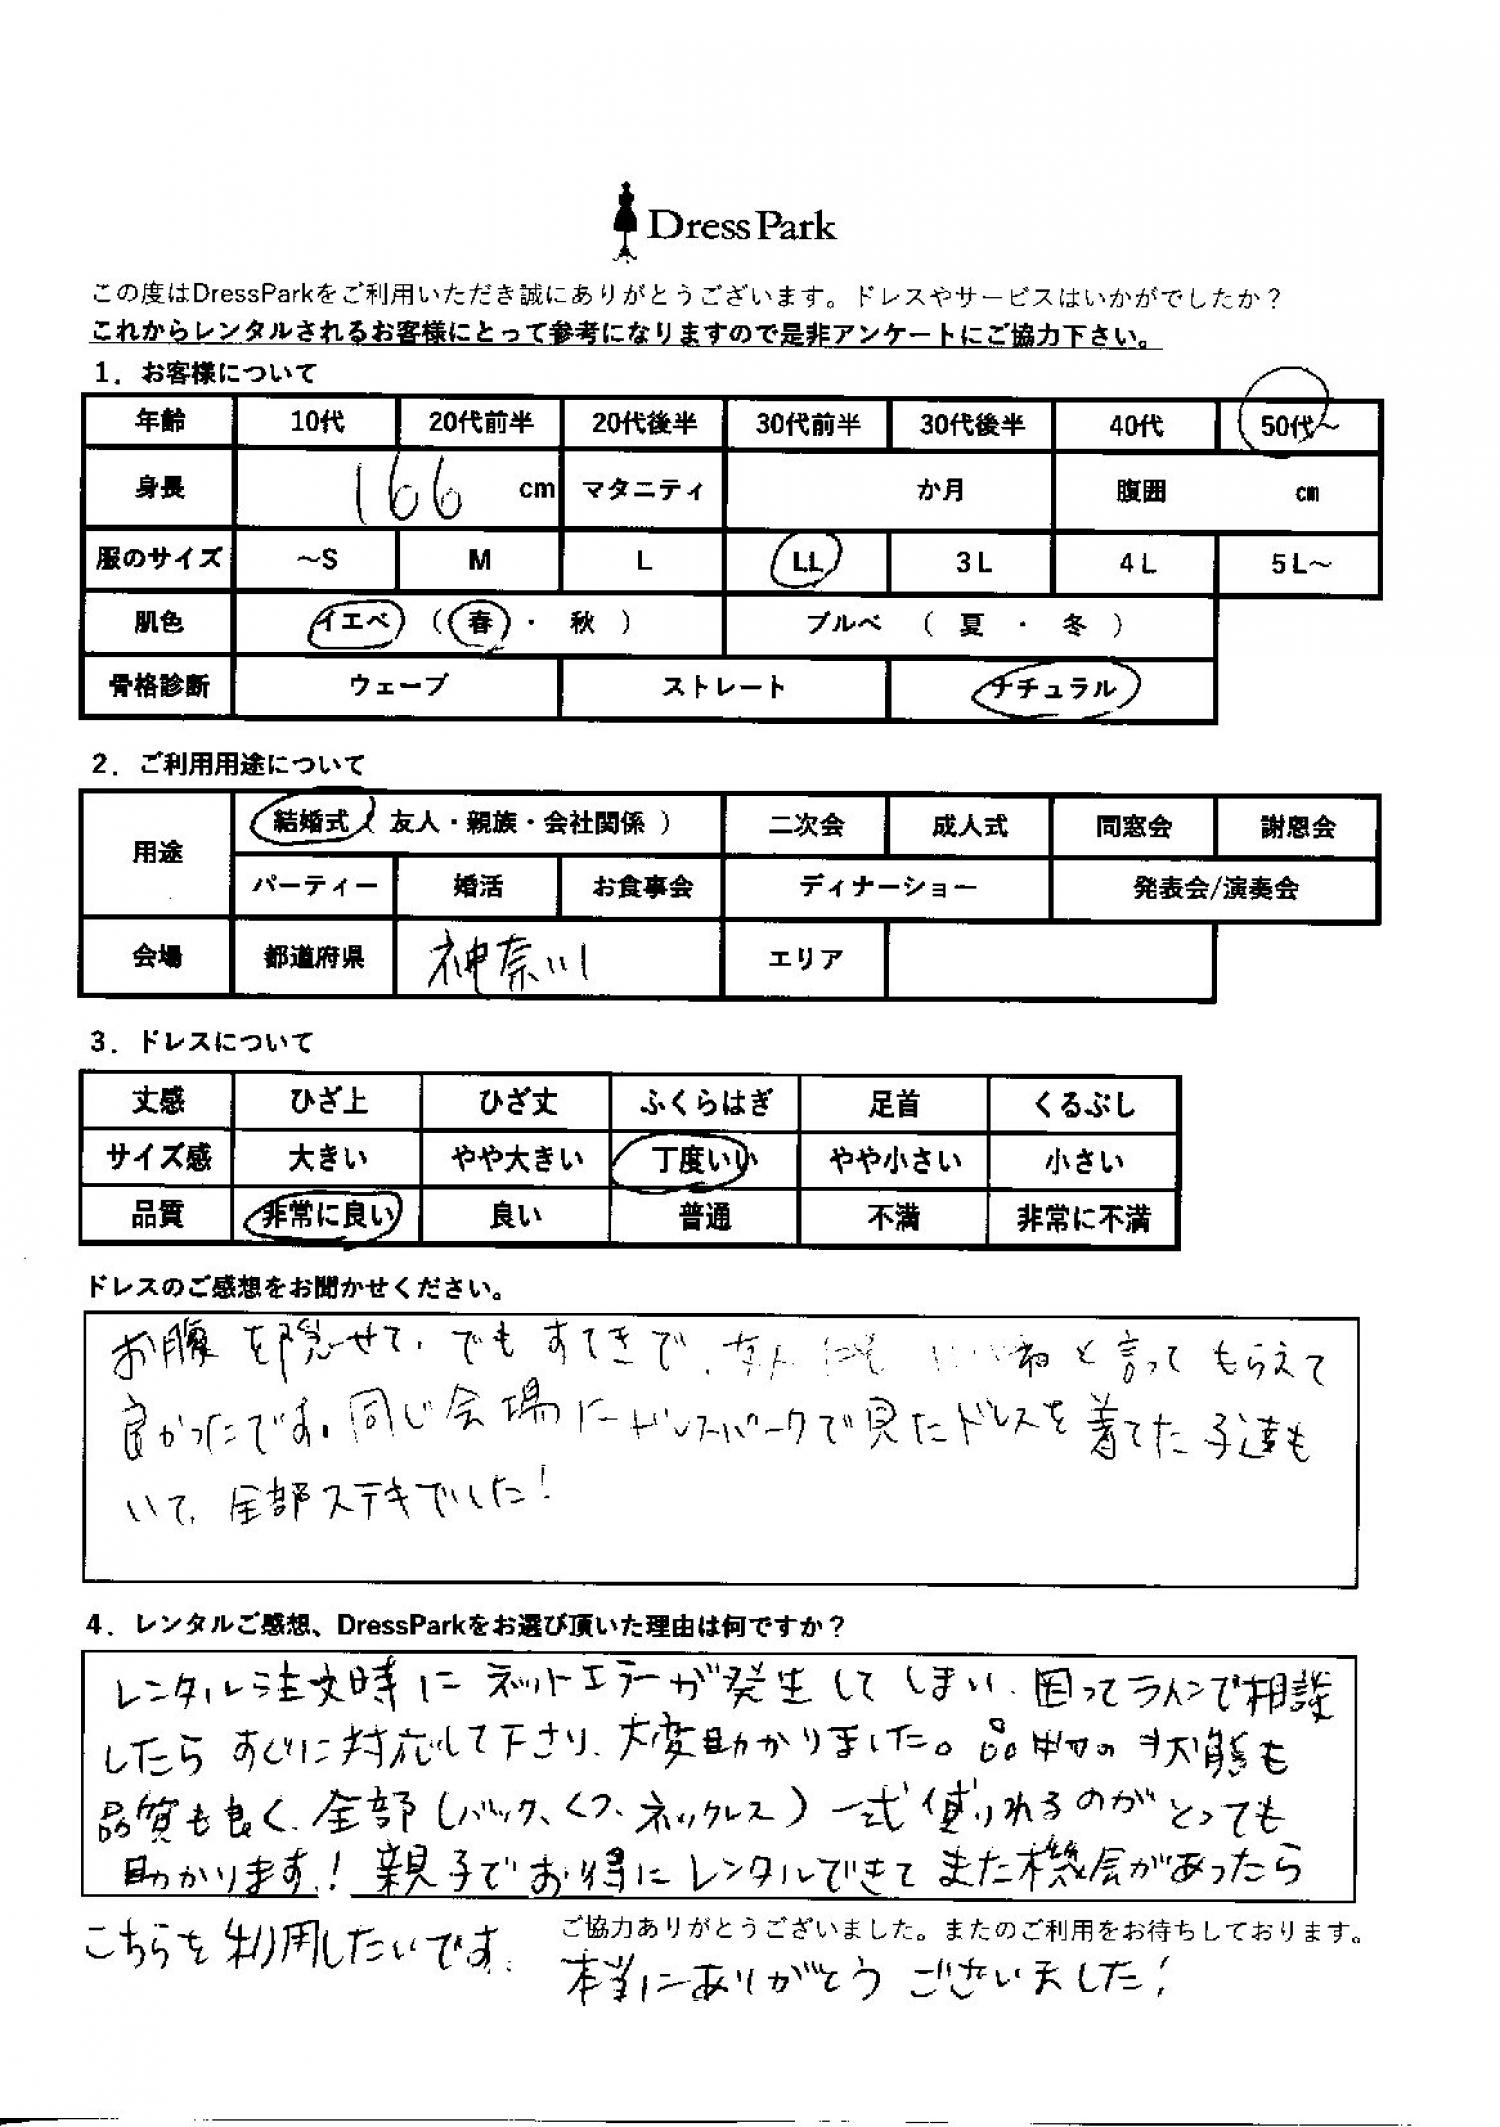 DressPark
この度はDressParkをご利用いただき誠にありがとうございます。ドレスやサービスはいかがでしたか？
これからレンタルされるお客様にとって参考になりますので是非アンケートにご協力下さい。
1．お客様について
年齢 10代 20代前半 20代後半 30代前半 30代後半 40代 50代～
身長 166 cm マタニティ か月 腹囲 cm
服のサイズ ～S M L LL 3L 4L 5L～
肌色 イエベ （ 春 ・ 秋 ） ブルベ （ 夏 ・ 冬 ）
骨格診断 ウェーブ ストレート ナチュラル
2．ご利用用途について
用途 結婚式（ 友人・親族・会社関係 ） 二次会 成人式 同窓会 謝恩会
パーティー 婚活 お食事会 ディナーショー 発表会/演奏会
会場 都道府県 神奈川 エリア
3．ドレスについて
丈感 ひざ上 ひざ丈 ふくらはぎ 足首 くるぶし
サイズ感 大きい やや大きい 丁度いい やや小さい 小さい
品質 非常に良い 良い 普通 不満 非常に不満
ドレスのご感想をお聞かせください。
お腹を隠せて、でもすてきで、 ね と言ってもらえて
良かったです。同じ会場にドレスパークで見たドレスを着てた子達も
いて、全部ステキでした！
4．レンタルご感想、DressParkをお選び頂いた理由は何ですか？
レンタル注文時にネットエラーが発生してしまい、困ってラインで相談
したらすぐに対応して下さり、大変助かりました。品物の状態も
品質も良く、全部（バック、くつ、ネックレス）一式借りれるのがとっても
助かります！親子でお得にレンタルできてまた機会があったら
こちらを利用したいです。
ご協力ありがとうございました。またのご利用をお待ちしております。
本当にありがとうございました！